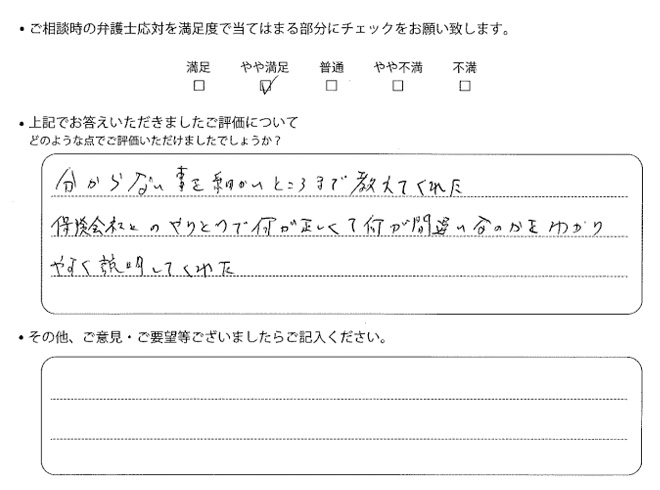 • ご相談時の弁護士応対を満足度で当てはまる部分にチェックをお願い致します。
満足 やや満足 普通 やや不満 不満
□ ☑ □ □ □
• 上記でお答えいただきましたご評価について
どのような点でご評価いただけましたでしょうか？
分からない事を細かいところまで教えてくれた
保険会社とのやりとりで何が正しくて何が間違いなのかをわかり
やすく説明してくれた
• その他、ご意見・ご要望等ございましたらご記入ください。